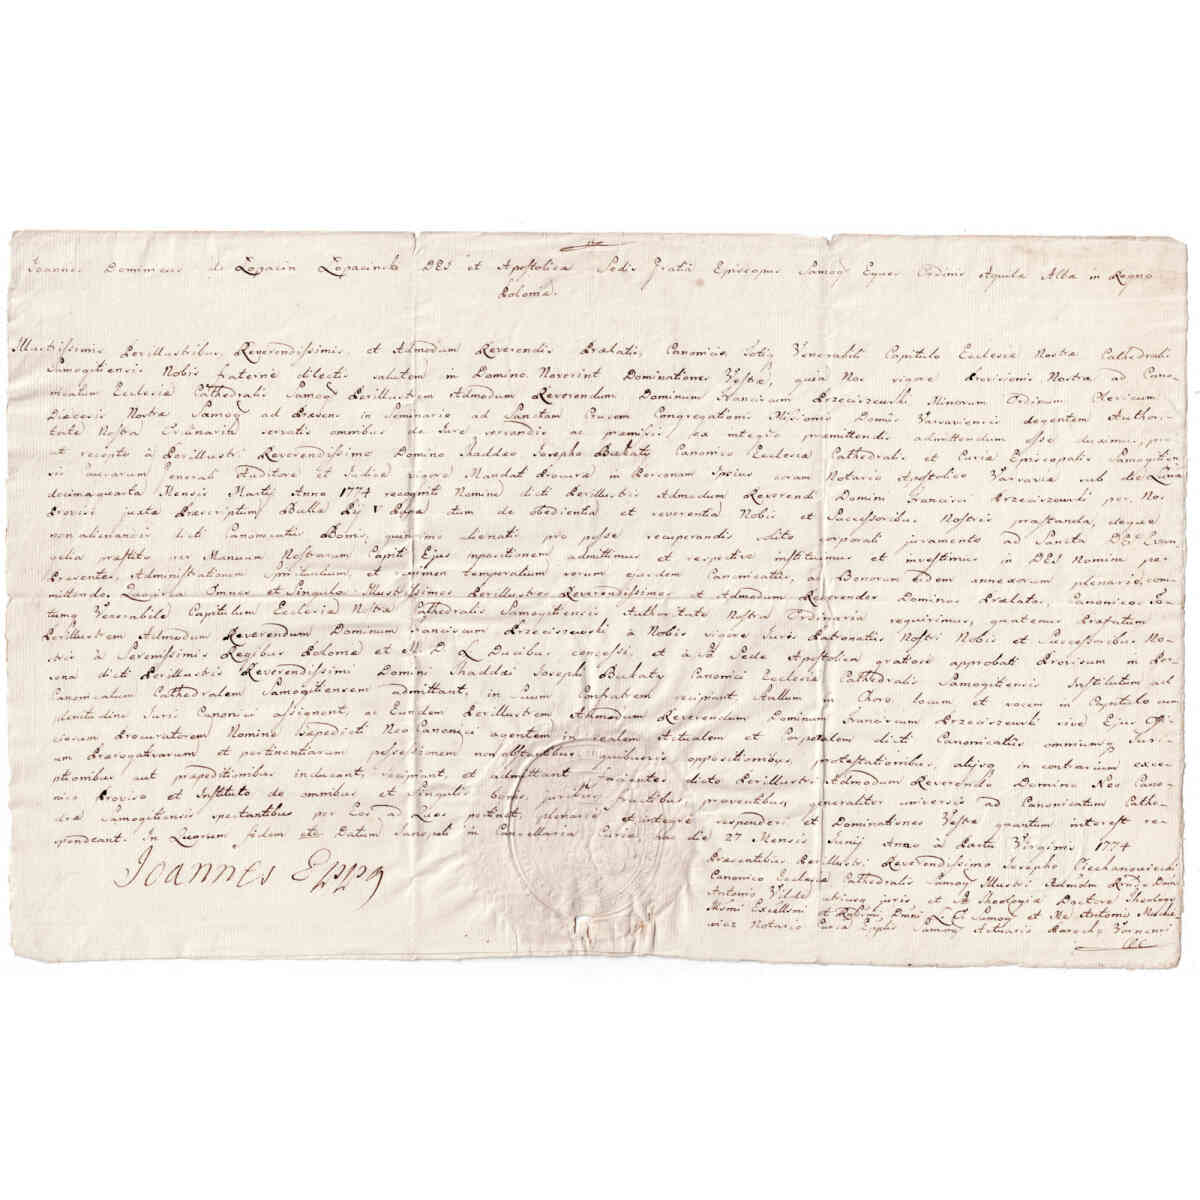 Joannes Dominicus de Łopacin Łopacinski DEI et Apostolicæ Sedis Gratiâ Episcopus Samog Eques Ordinis Aquilæ Albæ in Regno
Poloniæ.
Illustrissimis Perillustribus, Reverendissimis, et Admodum Reverendis Prælatis, Canonicis, totiq Venerabili Capitulo Ecclesiæ Nostræ Cathedralis
Samogitiensis Nobis fraterne dilectis salutem in Domino. Noverint Dominationes Vestræ, quia Nos vigore Provisionis Nostræ ad Cano-
nicatum Ecclesiæ Cathedralis Samog Perillustrem Admodum Reverendum Dominum Franciscum Przeciszewski Minorum Ordinum Clericum
Diæcesis Nostræ Samog ad Præsens in Seminario ad Sanctam Crucem Congregationis Missionis Domûs Varsaviensis degentem Authori-
tate Nostra Ordinaria servatis omnibus de Jure servandis ac præmissis, ex integro præmittendis admittendum esse duximus, pro
ut recepto à Perillustri Reverendissimo Domino Thaddeo Josepho Bukaty Canonico Ecclesiæ Cathedralis et Curiæ Episcopalis Samogitien
sis Causarum Generali Auditore et Judice vigore Mandat Procuræ in Personam Ipsius coram Notario Apostolico Varsaviæ sub die
decima quarta Mensis Martij Anno 1774 recogniti Nomine dicti Perillustris Admodum Reverendi Domini Francisci Przeciszewski per Nos
Provisi juxta Præscriptum Bullæ Pij V Pppæ tum de obedientia et reverentia Nobis et Successoribus Nostris præstanda, deque
non alienandis dicti Canonicatus Bonis, quinimo alienatis pro posse recuperandis solito corporali juramento ad Sancta DEi Evan-
gelia præstito per Manuum Nostrarum Capiti Ejus inpositionem admittimus et respective instituimus et investimus in DEI Nomine per
Præsentes, Administrationem Spiritualium, et regimen temporalium rerum ejusdem Canonicatus, ac Bonorum eidem annexorum plenariè com-
mittendo. Quocirca Omnes et Singulos Illustrissimos Perillustres Reverendissimos et Admodum Reverendos Dominos Prælatos, Canonicos To-
tumq Venerabile Capitulum Ecclesiæ Nostræ Cathedralis Samogitiensis Authoritate Nostra Ordinaria requirimus, quatenus Præfatum
Perillustrem Admodum Reverendum Dominum Franciscum Przeciszewski à Nobis vigore Juris Patronatûs Nostri Nobis et Successoribus No-
stris à Serenissimis Regibus Poloniæ et M. D. L Ducibus concessi, et à S Sede Apostolica gratiose approbati Provisum in Per-
sona dicti Perillustris Reverendissimi Domini Thaddæi Joseph Bukaty Canonici Ecclesiæ Cathedralis Samogitiensis Institutum ad
Canonicatum Cathedralem Samogitiensem admittant, in Suum Confratrem recipiant Stallum in Choro, locum, et vocem in Capitulo cum
plenitudine Juris Canonici assignent, ac Eundem Perillustrem Admodum Reverendum Dominum Franciscum Przeciszewski sive Ejus Offi-
ciosum Procuratorem Nomine Sæpedicti Neo Canonici agentem in realem Actualem et Corporalem dicti Canonicatus omniumq Juri-
um Prærogativarum et pertinentiarum possessionem non obstantibus quibusvis oppositionibus, protestationibus, alijsq in contrarium exce-
ptionibus aut præpeditionibus inducant, recipiant, et admittant facientes dicto Perillustri Admodum Reverendo Domino Neo Cano-
nico Proviso et Instituto de omnibus et Singulis bonis, juribus fructibus, proventibus, generaliter universis ad Canonicatum Cathe-
dræ Samogitiensis spectantibus per Eos, ad Quos pertinet, plenarie et integre responderi et Dominationes Vestræ quantum interest re-
spondeant. In Quorum fidem etc Datum Janopoli in Cancellaria Curiæ hac die 27 Mensis Junij Anno à Partu Virginis 1774
Joannes Eppq
Præsentibus Perillustri Reverendissimo Josepho Ciechanowiecki
Canonico Ecclesiæ Cathedralis Samog Illustri Admdm Rndo Dno
Antonio Wilde utriusq juris et S Theologiæ Doctore Theology
Illsmi Excellsmi et Rdsimi Dmni L. E. Samog et Me Antonio Mackie-
wicz Notario Curiæ Epplis Samog Actuario Paroch Vornensi